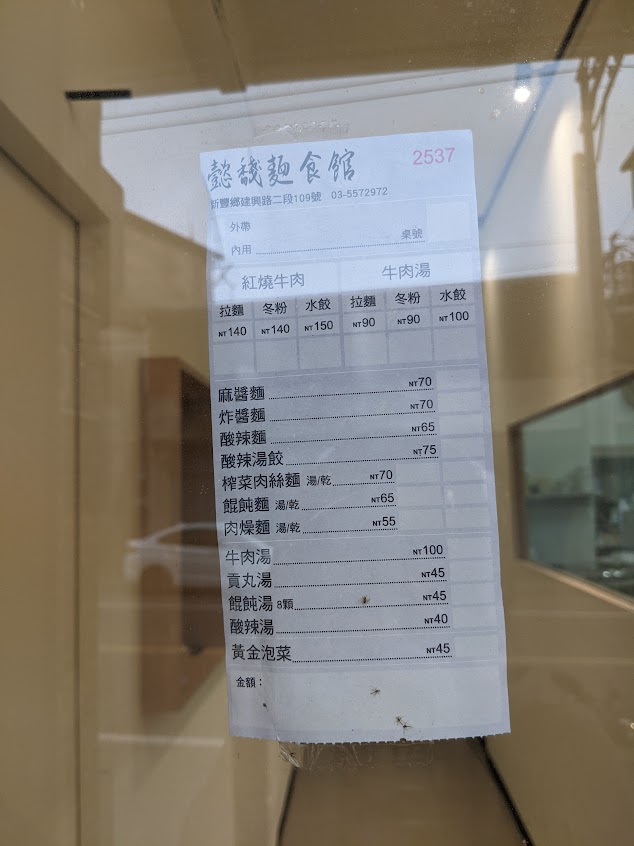 懿馥麵食館 2537
新豐鄉建興路二段109號 03-5572972
外帶
內用 桌號
紅燒牛肉 牛肉湯
拉麵 冬粉 水餃 拉麵 冬粉 水餃
NT140 NT140 NT150 NT90 NT90 NT100
麻醬麵 NT70
炸醬麵 NT70
酸辣麵 NT65
酸辣湯餃 NT75
榨菜肉絲麵 湯/乾 NT70
餛飩麵 湯/乾 NT65
肉燥麵 湯/乾 NT55
牛肉湯 NT100
貢丸湯 NT45
餛飩湯 8顆 NT45
酸辣湯 NT40
黃金泡菜 NT45
金額：